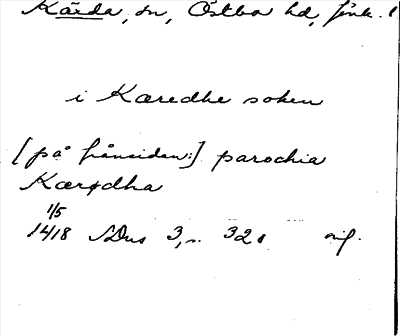 Kärda, sn, Östbo hd, Jönk. l
i Kæredhe soken
[på frånsiden:] parochia
Kærødha
1/5
1418 SDns 3, s. 320 orig.